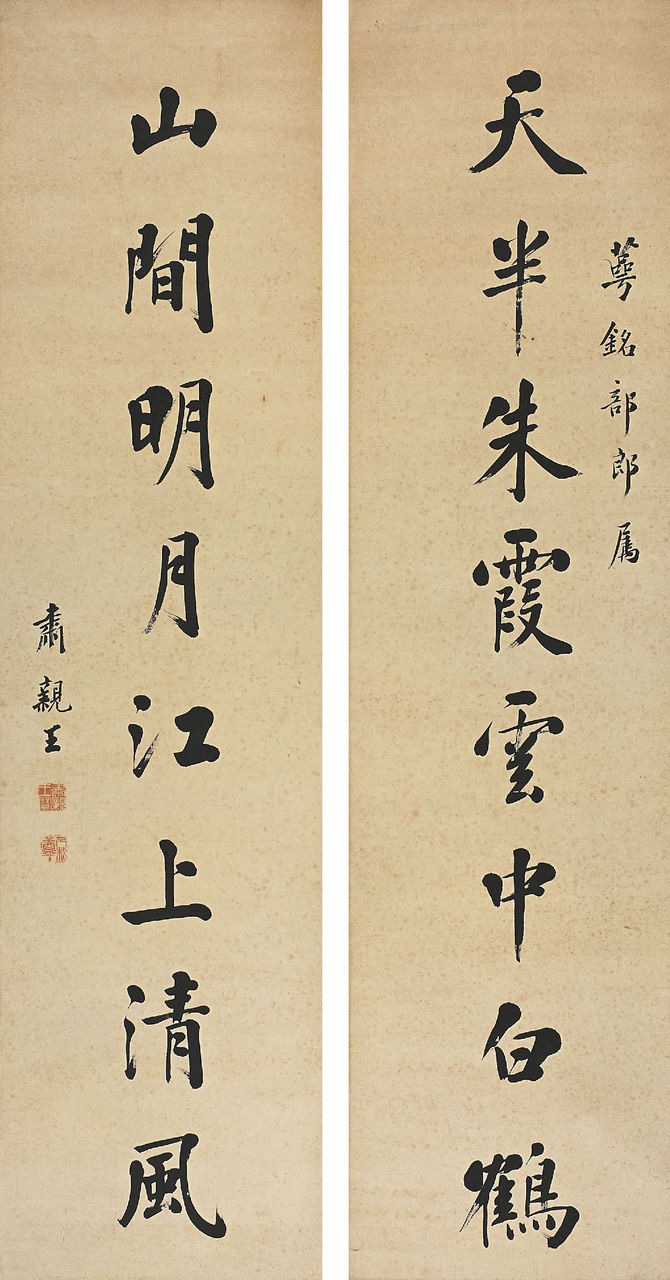 蕚銘部郎属
天半朱霞雲中白鶴
山間明月江上清風
肅親王